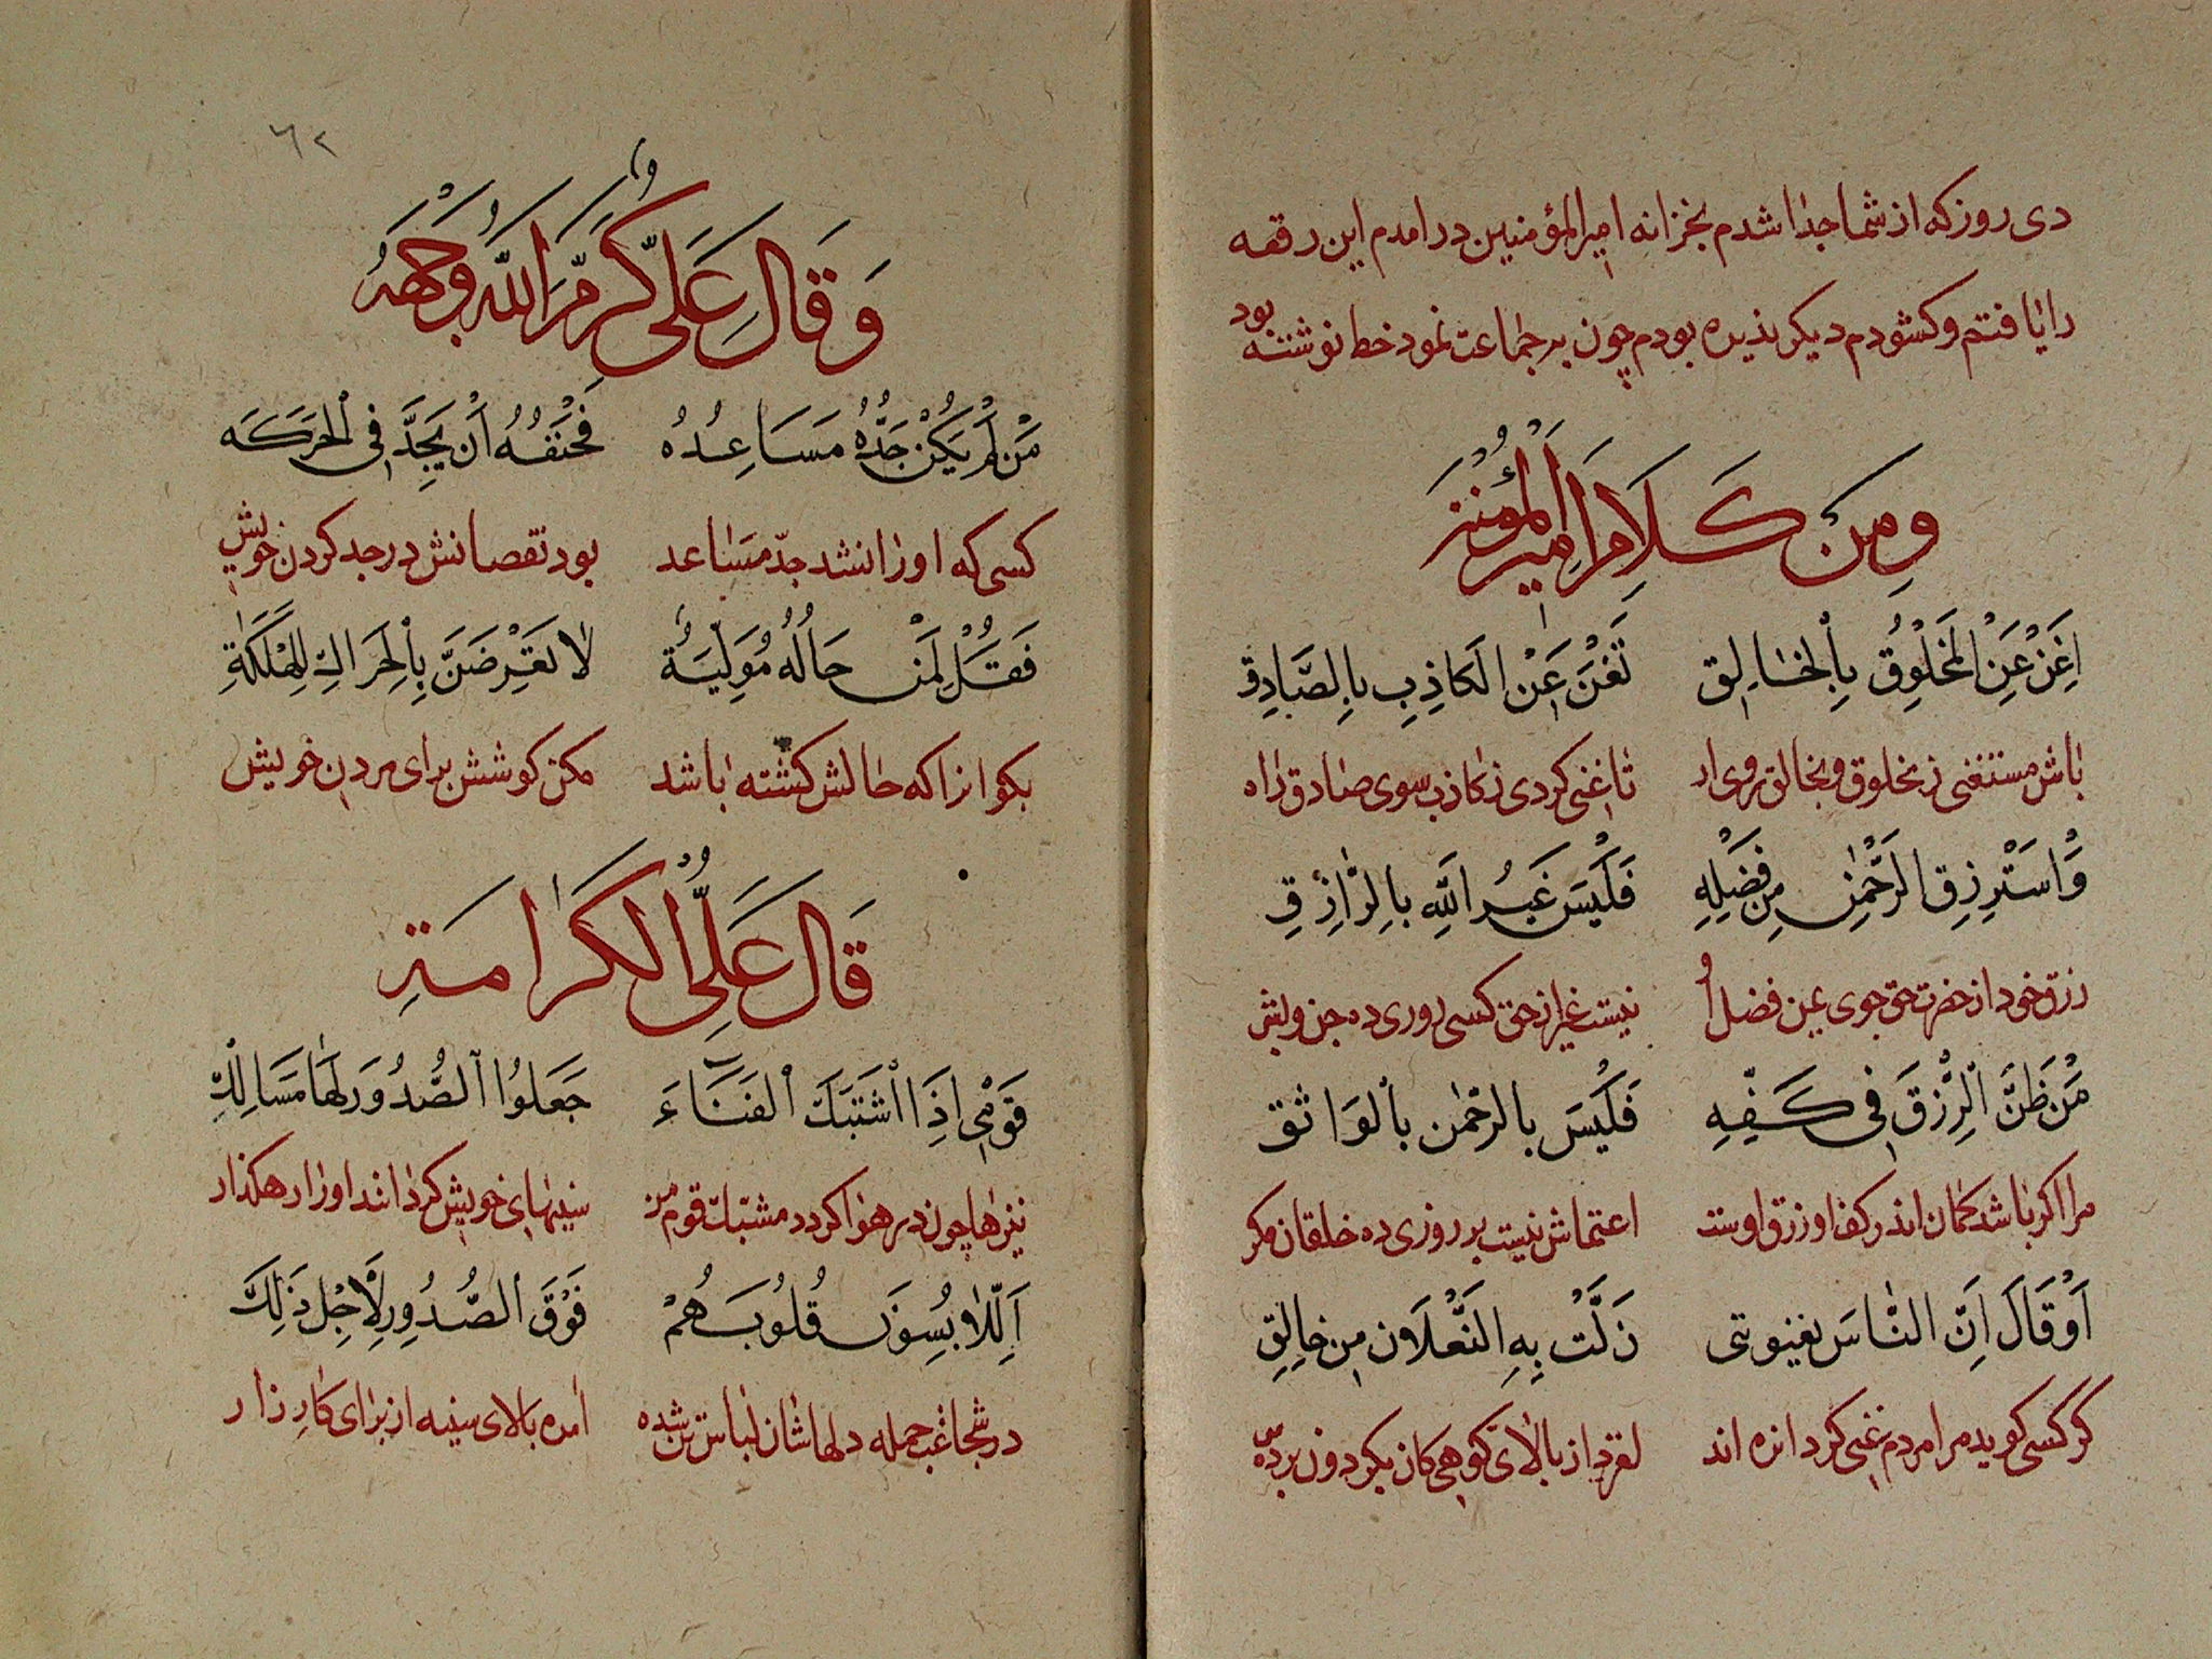 دی روز که از شما جدا شدم بخزانه امیرالمؤمنین درامدم این رقعه
را یافتم و کشودم دیکر بذیره بودم چون بر جماعت نمود خط نوشته بود
وَمِن كَلَامِ اَمِيرِ الْمُؤْمِنِينَ
اِغَنِ عَنِ الْمَخْلُوقِ بِالْخَالِقِ تَغْنَ عَنِ الْكَاذِبِ بِالصَّادِقِ
باش مستغنی ز مخلوق و بخالق روی ار تا غنی کردی ز کاذب سوی صادق راه
وَاسْتَرْزِقِ الرَّحْمٰنَ مِن فَضْلِهِ فَلَيْسَ غَيْرُ اللَّهِ بِالرَّازِقِ
رزق خود از حضرت حق جوی عین فضل او نیست غیر از حق کسی روزی ده جن و بشر
مَن ظَنَّ الرِّزْقَ فِی كَفِّهِ فَلَيْسَ بالرحْمٰن بالوَاثق
مرا اکر باشد کمان اندر کف او رزق اوست اعتماش نیست بر روزی ده خلقان مکر
اَوْ قَالَ اِنَّ النَّاسَ یغنیونی زَلَّتْ بِهِ النَّعْلَان مِن خالِقِ
کر کسی کوید مرا مردم غنی کردانده اند لغزد از بالای کوهی کان بکردون برده سر
٦٢
وَقَالَ عَلِیّ كَرَّمَ اللَّهُ وَجْهَهُ
مَن لَمْ يَكُنْ جَدُّهُ مسَاعِدُهُ فَحَتْفُهُ اَن يَجِدَّ فِی الْحَرَكَه
کسی که او را نشد جدّ مساعد بود نقصانش در جد کردن خویش
فَقُلْ لِمَنْ حَالُهُ مُوَلِّيَةٌ لَا تعَرِّضَنَّ بِالْحَرَاكِ لِلْهَلَكَةِ
بکو انرا که حالش کشته باشد مکن کوشش برای مردن خویش
قَالَ عَلِیُّ الْكَرَامَةِ
قَوْمِی اِذَا اشْتَبَكَ الْقَنَاءَ جَعَلُوا الصُّدُورَ لَهَا مَسَالِكِ
نیزها چون در هوا کردد مشتبک قوم من سینهای خویش کرداند او را رهکذار
اَللَّابِسُونَ قُلُوبَهُمْ فَوْقَ الصُّدُورِ لِاَجْلِ ذَلِكَ
در شجاعت جمله دلهاشان لباس تن شده امده بالای سینه از برای کارزار